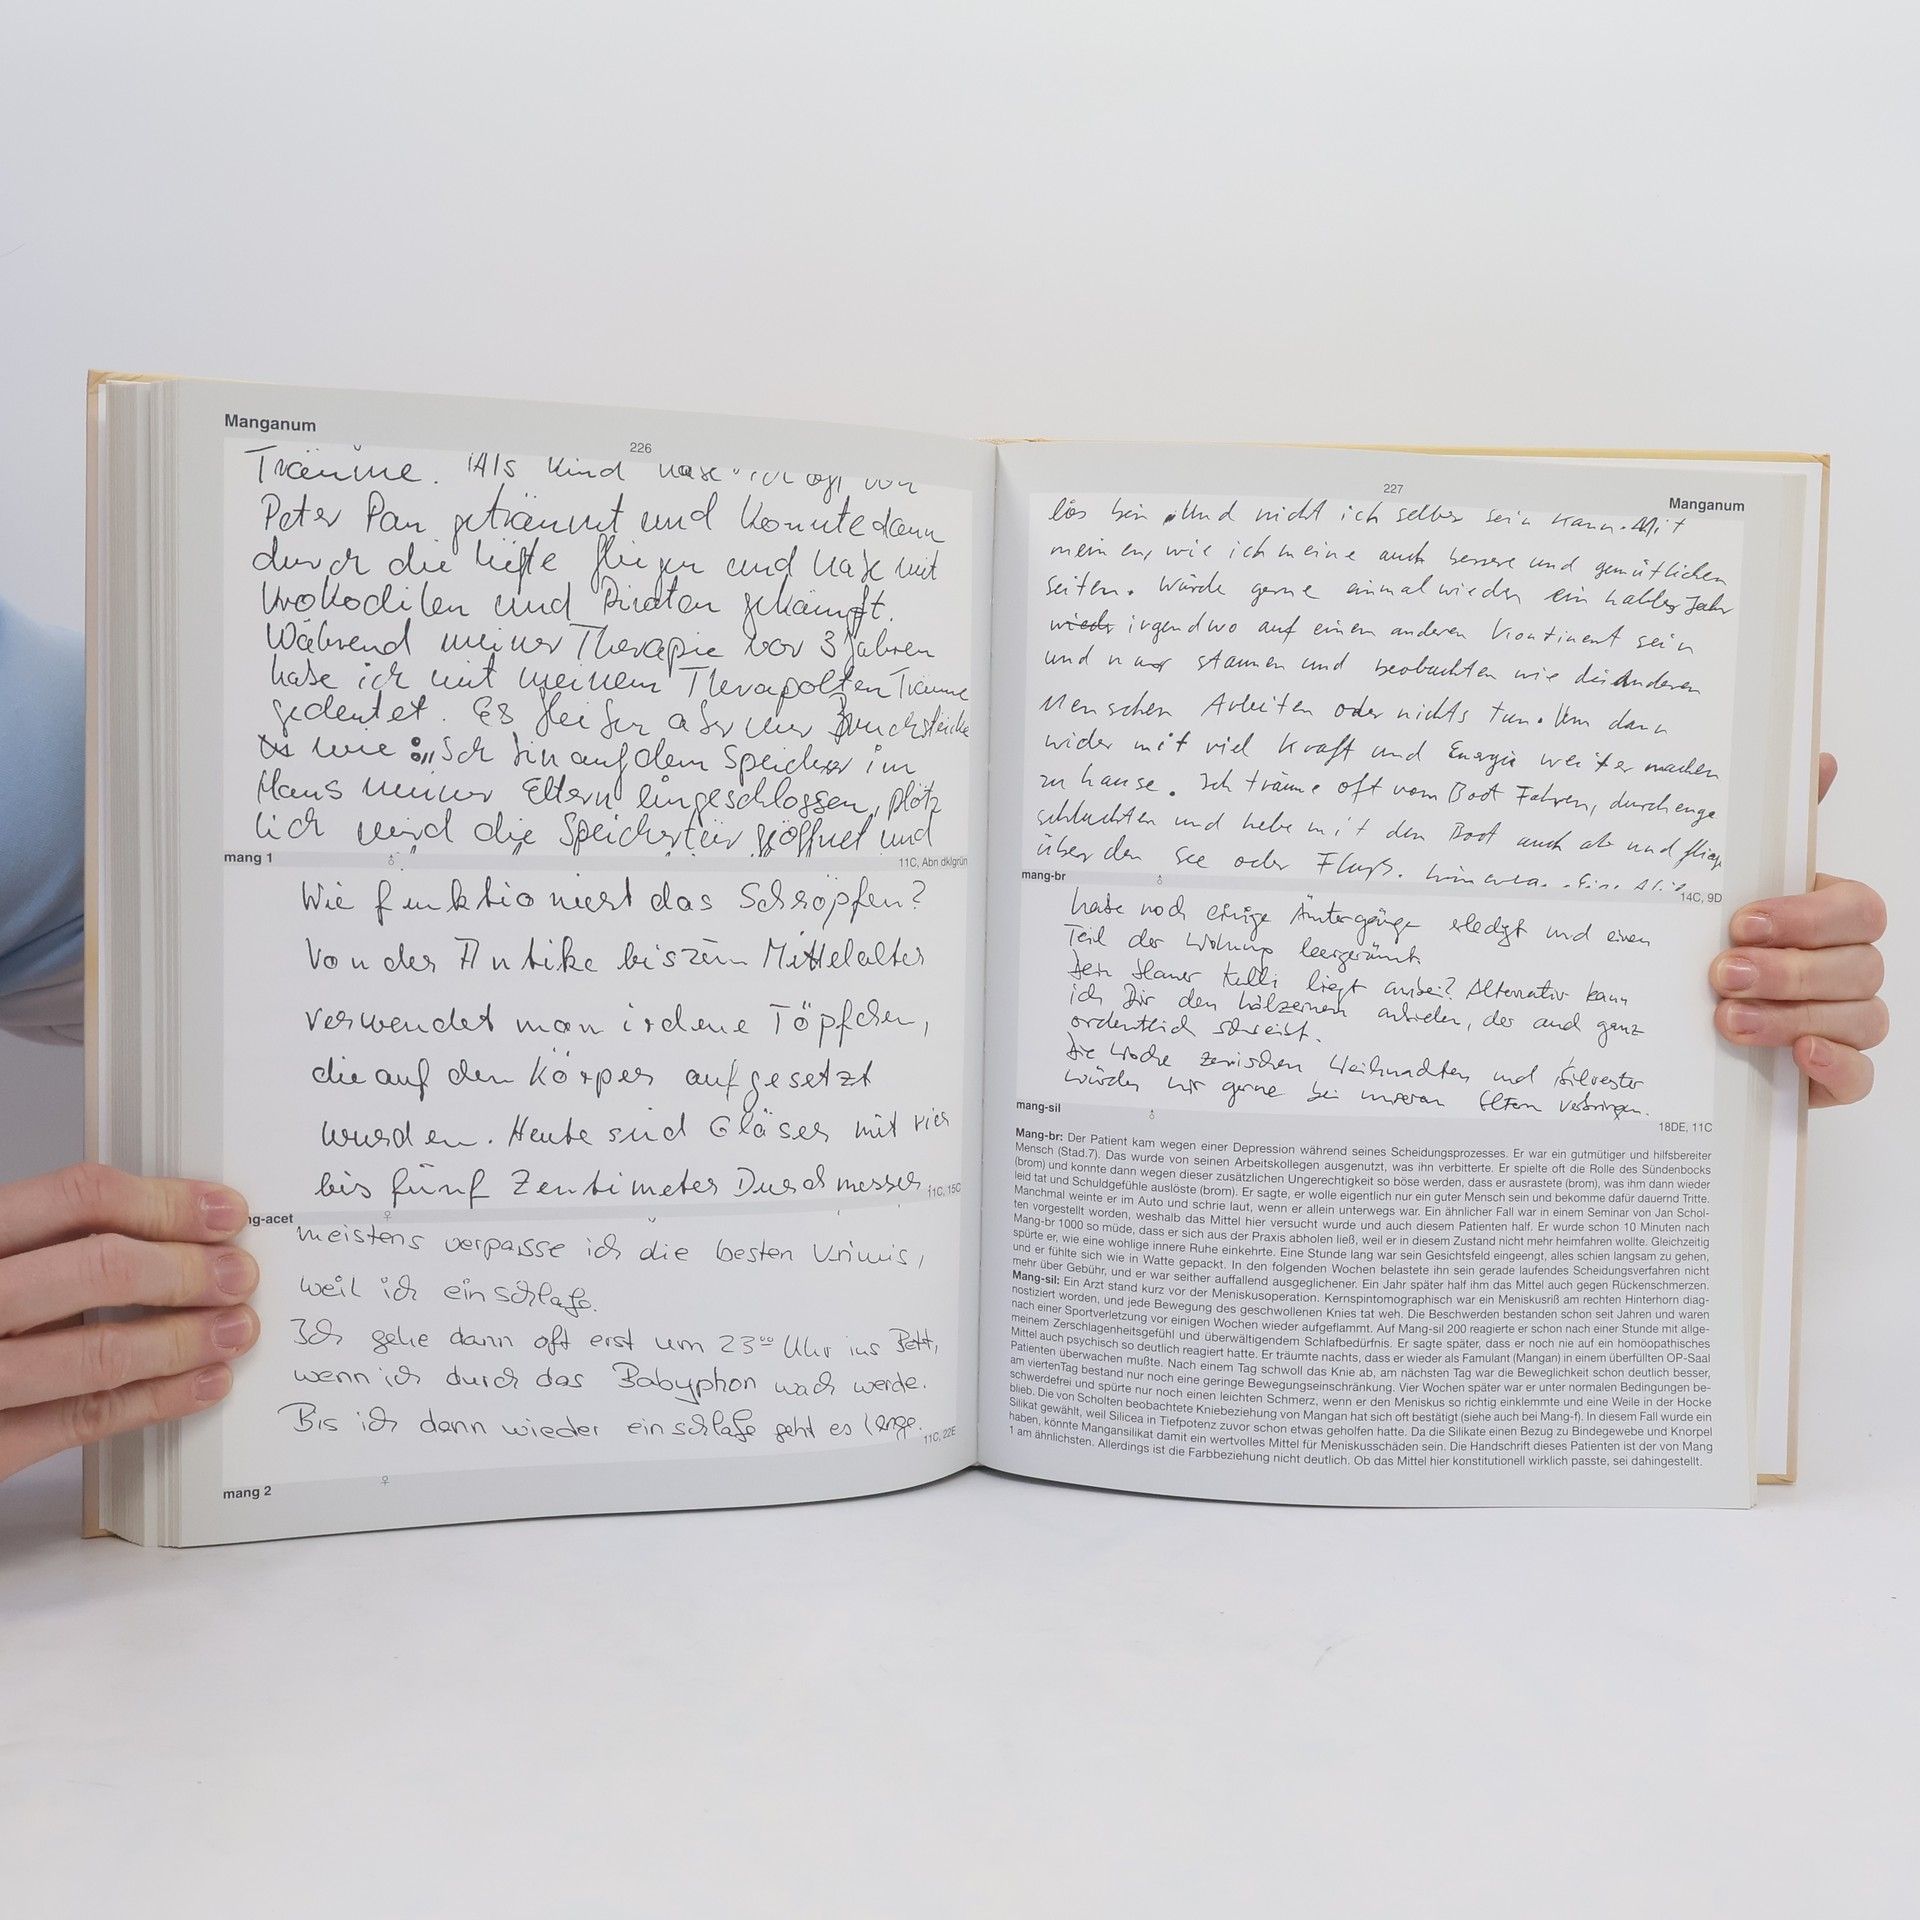 Manganum
226
Träume. Als Kind habe ich oft von
Peter Pan geträumt und konnte dann
durch die Lüfte fliegen und habe mit
Krokodilen und Piraten gekämpft.
Während meiner Therapie vor 3 Jahren
habe ich mit meinem Therapolten Träume
gedeutet. Es bleiben aber nur Bruchstücke
wie: "Ich bin auf dem Speicher im
Haus meiner Eltern eingeschlossen, plötz
lich wird die Speichertür geöffnet und
mang 1
♂
11C, Abn dklgrün
Wie funktioniert das Schröpfen?
Von der Antike bis zum Mittelalter
verwendet man irdene Töpfchen,
die auf den Körper aufgesetzt
wurden. Heute sind Gläser mit vier
bis fünf Zentimeter Durchmesser
11C, 15C
ng-acet
♀
meistens verpasse ich die besten Krimis,
weil ich einschlafe.
Ich gehe dann oft erst um 23⁰⁰ Uhr ins Bett,
wenn ich durch das Babyphon wach werde.
Bis ich dann wieder einschlafe geht es lange.
11C, 22E
mang 2
♀
227
Manganum
los bin. Und nicht ich selber sein kann. Mit
meinen, wie ich meine auch bessere und gemütlichen
seiten. Würde gerne einmal wieder ein halbes Jahr
irgendwo auf einem anderen Kontinent sein
und nur staunen und beobachten wie die anderen
Menschen Arbeiten oder nichts tun. Um dann
wider mit viel Kraft und Energie weiter machen
zu hause. Ich träume oft vom Boot Fahren, durch enge
schluchten und hebe mit dem Boot auch ab und fliege
über den See oder Fluß.
mang-br
♂
14C, 9D
habe noch einige Ämtergänge erledigt und einen
Teil der Wohnung leergeräumt.
Dein blauer Kulli liegt anbei? Alternativ kann
ich Dir den hölzernen anbieten, der auch ganz
ordentlich schreibt.
Die Woche zwischen Weihnachten und Silvester
würden wir gerne bei unseren Eltern verbringen.
mang-sil
♂
18DE, 11C
Mang-br: Der Patient kam wegen einer Depression während seines Scheidungsprozesses. Er war ein gutmütiger und hilfsbereiter
Mensch (Stad.7). Das wurde von seinen Arbeitskollegen ausgenutzt, was ihn verbitterte. Er spielte oft die Rolle des Sündenbocks
(brom) und konnte dann wegen dieser zusätzlichen Ungerechtigkeit so böse werden, dass er ausrastete (brom), was ihm dann wieder
leid tat und Schuldgefühle auslöste (brom). Er sagte, er wolle eigentlich nur ein guter Mensch sein und bekomme dafür dauernd Tritte.
Manchmal weinte er im Auto und schrie laut, wenn er allein unterwegs war. Ein ähnlicher Fall war in einem Seminar von Jan Schol-
ten vorgestellt worden, weshalb das Mittel hier versucht wurde und auch diesem Patienten half. Er wurde schon 10 Minuten nach
Mang-br 1000 so müde, dass er sich aus der Praxis abholen ließ, weil er in diesem Zustand nicht mehr heimfahren wollte. Gleichzeitig
spürte er, wie eine wohlige innere Ruhe einkehrte. Eine Stunde lang war sein Gesichtsfeld eingeengt, alles schien langsam zu gehen,
und er fühlte sich wie in Watte gepackt. In den folgenden Wochen belastete ihn sein gerade laufendes Scheidungsverfahren nicht
mehr über Gebühr, und er war seither auffallend ausgeglichener. Ein Jahr später half ihm das Mittel auch gegen Rückenschmerzen.
Mang-sil: Ein Arzt stand kurz vor der Meniskusoperation. Kernspintomographisch war ein Meniskusriß am rechten Hinterhorn diag-
nostiziert worden, und jede Bewegung des geschwollenen Knies tat weh. Die Beschwerden bestanden schon seit Jahren und waren
nach einer Sportverletzung vor einigen Wochen wieder aufgeflammt. Auf Mang-sil 200 reagierte er schon nach einer Stunde mit allge-
meinem Zerschlagenheitsgefühl und überwältigendem Schlafbedürfnis. Er sagte später, dass er noch nie auf ein homöopathisches
Mittel auch psychisch so deutlich reagiert hatte. Er träumte nachts, dass er wieder als Famulant (Mangan) in einem überfüllten OP-Saal
Patienten überwachen mußte. Nach einem Tag schwoll das Knie ab, am nächsten Tag war die Beweglichkeit schon deutlich besser,
am viertenTag bestand nur noch eine geringe Bewegungseinschränkung. Vier Wochen später war er unter normalen Bedingungen be-
schwerdefrei und spürte nur noch einen leichten Schmerz, wenn er den Meniskus so richtig einklemmte und eine Weile in der Hocke
blieb. Die von Scholten beobachtete Kniebeziehung von Mangan hat sich oft bestätigt (siehe auch bei Mang-f). In diesem Fall wurde ein
Silikat gewählt, weil Silicea in Tiefpotenz zuvor schon etwas geholfen hatte. Da die Silikate einen Bezug zu Bindegewebe und Knorpel
haben, könnte Mangansilikat damit ein wertvolles Mittel für Meniskusschäden sein. Die Handschrift dieses Patienten ist der von Mang
1 am ähnlichsten. Allerdings ist die Farbbeziehung nicht deutlich. Ob das Mittel hier konstitutionell wirklich passte, sei dahingestellt.